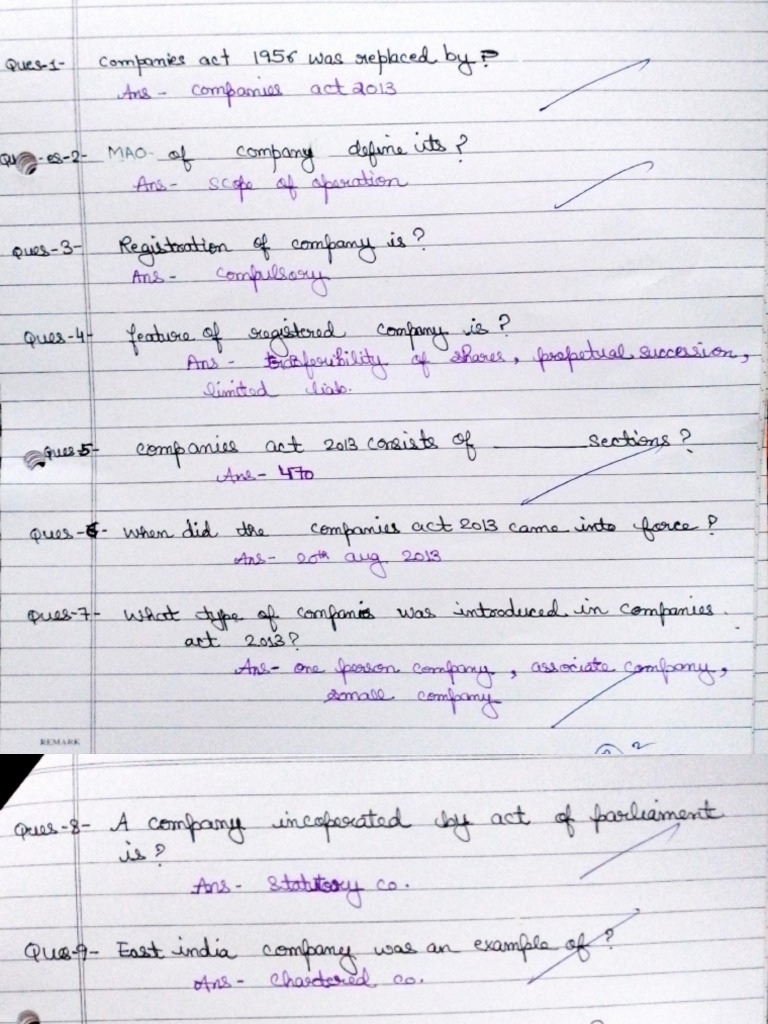 Ques-1- Companies act 1956 was replaced by?
Ans - Companies act 2013
Ques-2- MAO of company define its?
Ans- scope of operation
Ques-3- Registration of company is?
Ans- Compulsory
Ques-4- feature of registered company is?
Ans - of shares, prepetual succession,
limited liab.
Ques-5- companies act 2013 consists of ______ sections?
Ans- 470
Ques-6- when did the companies act 2013 came into force?
Ans- 20th aug. 2013
Ques-7- What type of companies was introduced in companies
act 2013?
Ans- one person company, associate company,
small company
REMARK
2
Ques-8- A company incoperated by act of parliament
is?
Ans- Statutory co.
Ques-9- East india company was an example of?
Ans- Chartered co.